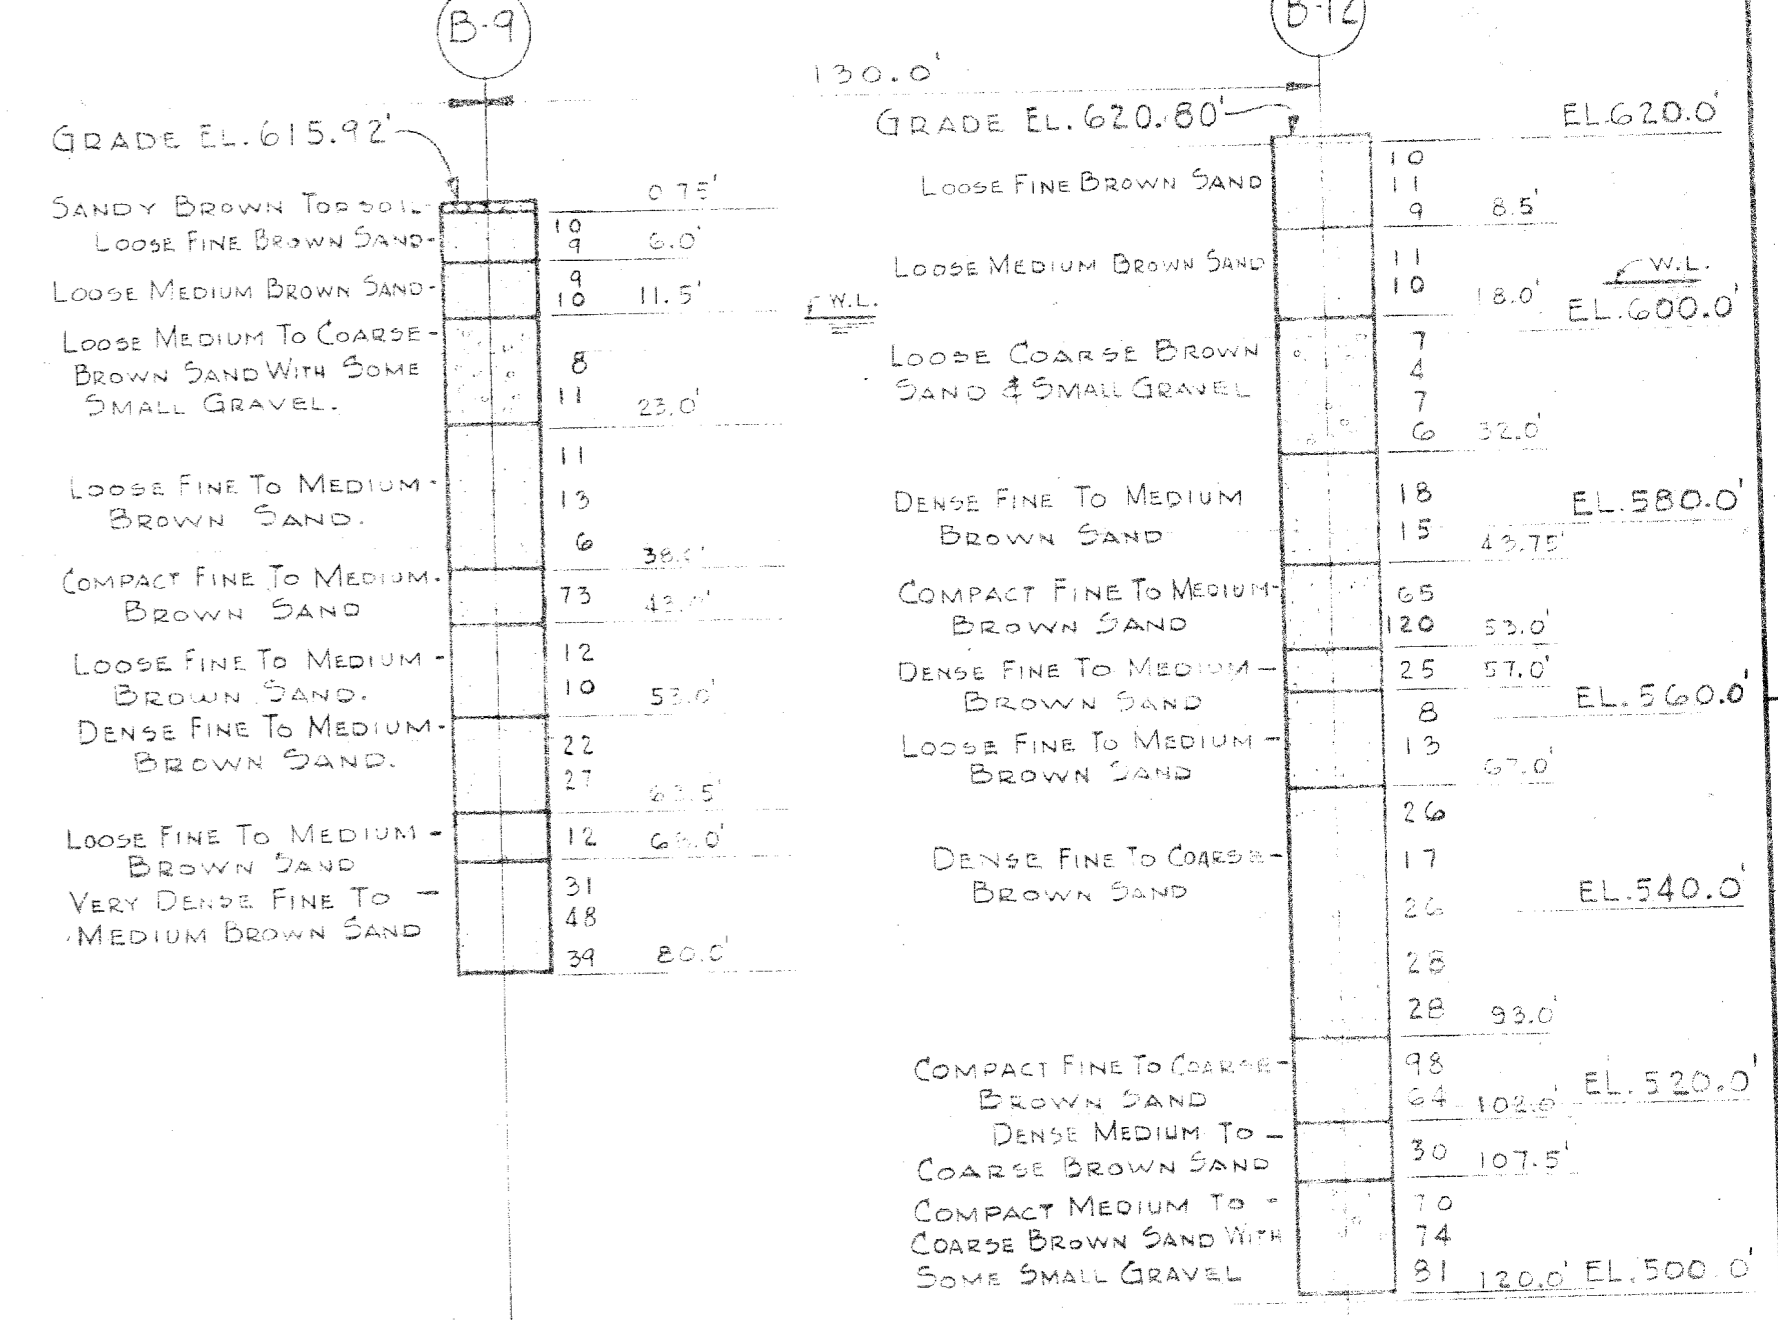 B-9
B-12
130.0'
GRADE EL. 615.92'
SANDY BROWN TOPSOIL-
0.75'
LOOSE FINE BROWN SAND-
10
9
6.0'
LOOSE MEDIUM BROWN SAND-
9
10
11.5'
W.L.
LOOSE MEDIUM TO COARSE-
BROWN SAND WITH SOME
SMALL GRAVEL.
8
11
23.0'
LOOSE FINE TO MEDIUM-
BROWN SAND.
11
13
6
COMPACT FINE TO MEDIUM-
BROWN SAND
73
LOOSE FINE TO MEDIUM-
BROWN SAND.
12
10
53.0'
DENSE FINE TO MEDIUM-
BROWN SAND.
22
27
63.5'
LOOSE FINE TO MEDIUM-
BROWN SAND
12
VERY DENSE FINE TO -
MEDIUM BROWN SAND
31
48
39
80.0'
GRADE EL. 620.80'
EL. 620.0'
LOOSE FINE BROWN SAND
10
11
9
8.5'
LOOSE MEDIUM BROWN SAND
11
10
18.0'
W.L.
EL. 600.0'
LOOSE COARSE BROWN
SAND & SMALL GRAVEL
7
4
7
6
32.0'
DENSE FINE TO MEDIUM
BROWN SAND
18
15
43.75'
EL. 580.0'
COMPACT FINE TO MEDIUM-
BROWN SAND
65
120
53.0'
DENSE FINE TO MEDIUM-
BROWN SAND
25
57.0'
EL. 560.0'
LOOSE FINE TO MEDIUM-
BROWN SAND
8
13
67.0'
DENSE FINE TO COARSE-
BROWN SAND
26
17
26
28
28
93.0'
EL. 540.0'
COMPACT FINE TO COARSE-
BROWN SAND
98
64
102.0'
EL. 520.0'
DENSE MEDIUM TO -
COARSE BROWN SAND
30
107.5'
COMPACT MEDIUM TO -
COARSE BROWN SAND WITH
SOME SMALL GRAVEL
70
74
81
120.0'
EL. 500.0'